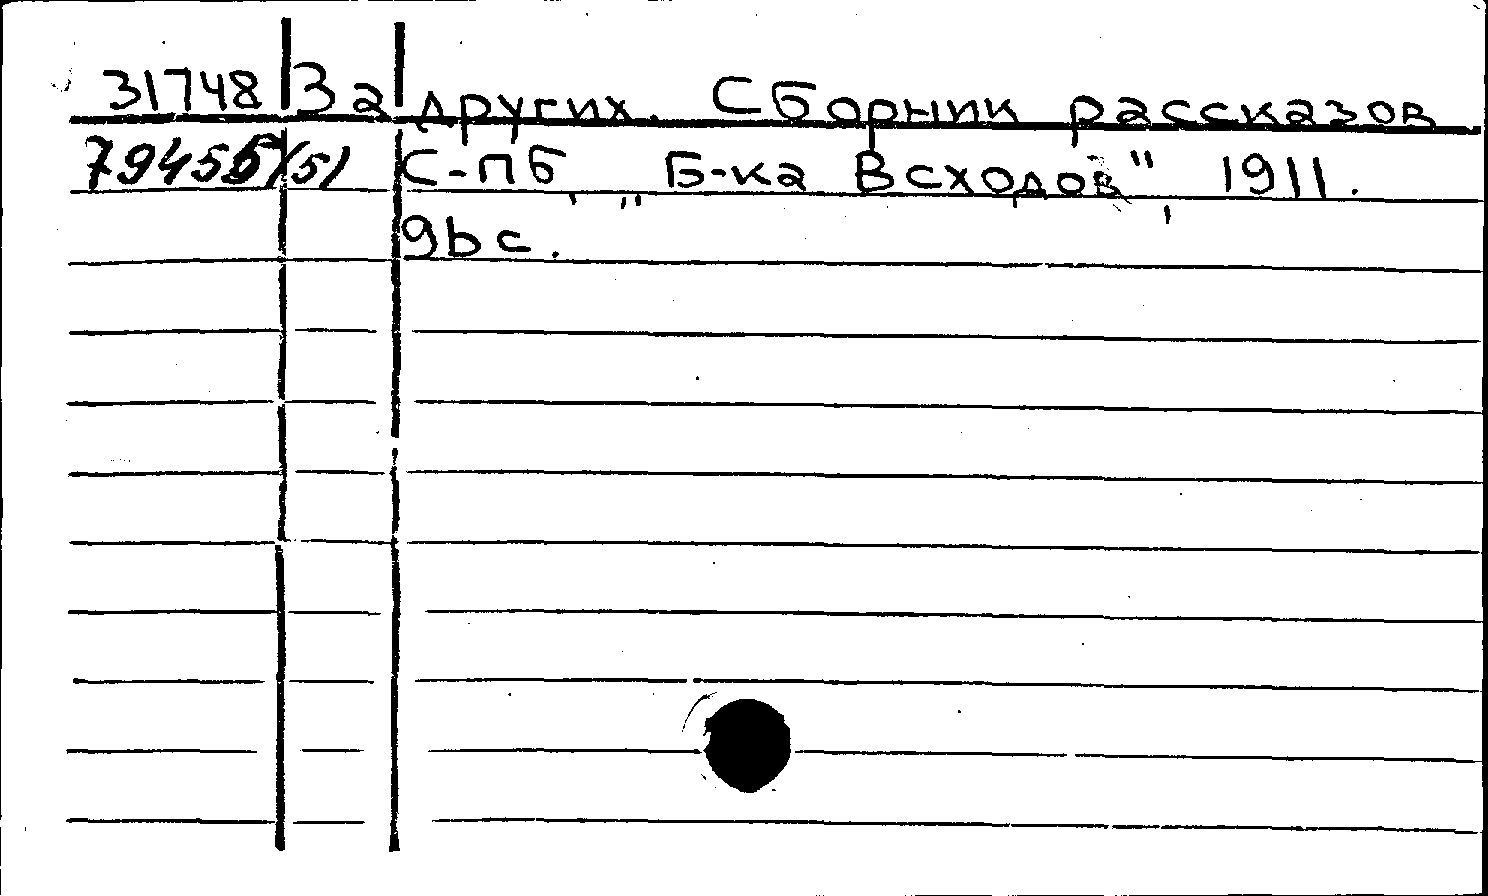 31748 За других. Сборник рассказов
79455(5) С-ПБ, „Б-ка Всходов", 1911.
96 с.